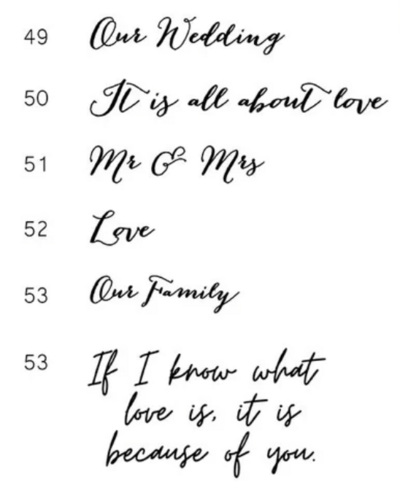 49 Our Wedding
50 It is all about love
51 Mr & Mrs
52 Love
53 Our Family
53 If I know what
love is, it is
because of you.